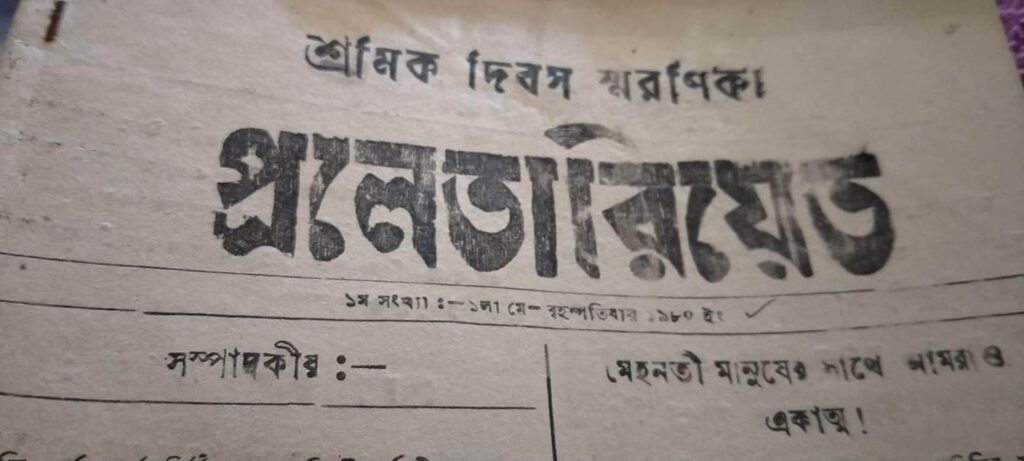 শ্রমিক দিবস স্মরণিকা
প্রলেতারিয়েত
১ম সংখ্যা :- ১লা মে- বৃহস্পতিবার ১৯৮০ ইং
সম্পাদকীয় :—
মেহনতী মানুষের সাথে আমরা ও
একাত্ম!